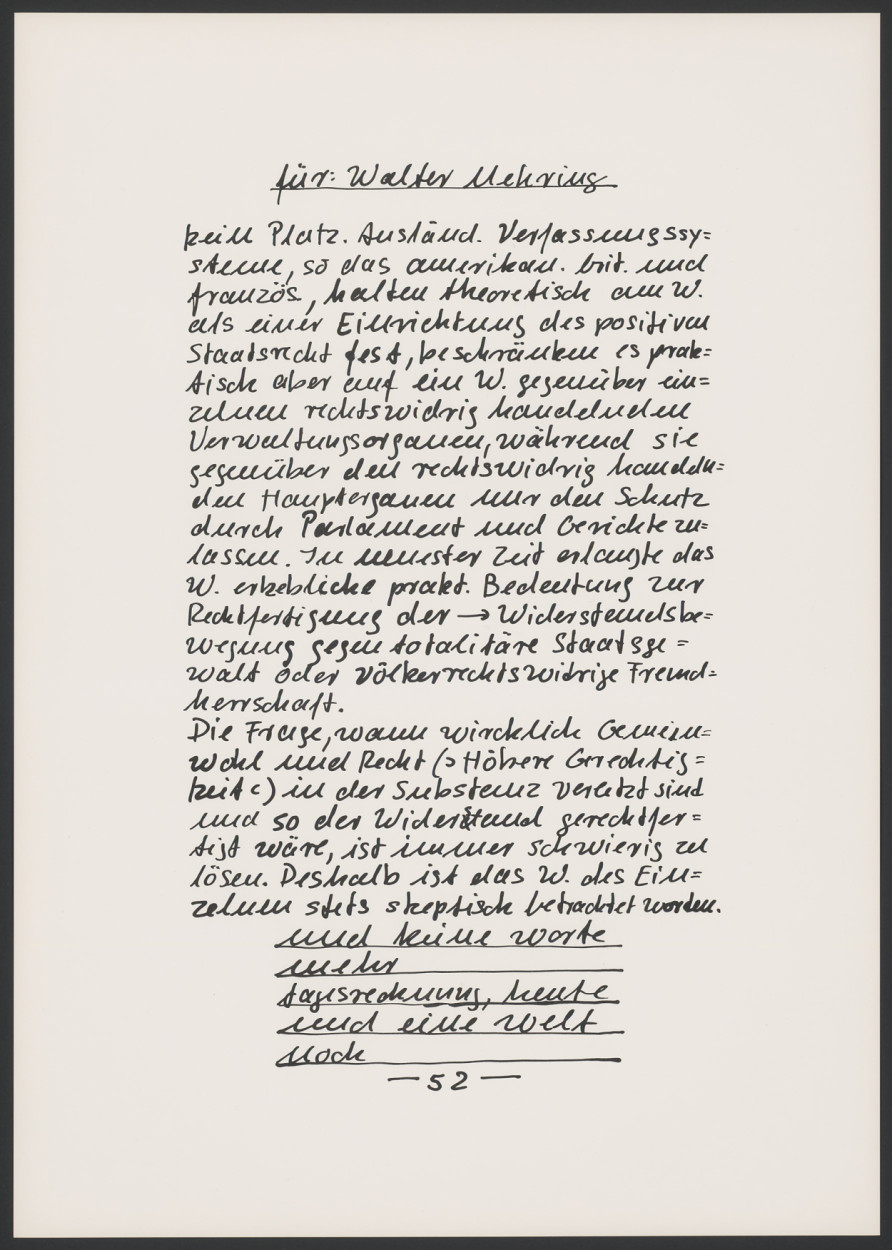 für: Walter Mehring
kein Platz. Ausländ. Verfassungssy=
steme, so das amerikan. brit. und
französ., halten theoretisch am W.
als einer Einrichtung des positiven
Staatsrecht fest, beschränken es prak=
tisch aber auf ein W. gegenüber ein=
zelnen rechtswidrig handelnden
Verwaltungsorganen, während sie
gegenüber den rechtswidrig handeln=
den Hauptorganen nur den Schutz
durch Parlament und Gerichte zu=
lassen. In neuester Zeit erlangte das
W. erhebliche prakt. Bedeutung zur
Rechtfertigung der → Widerstandsbe=
wegung gegen totalitäre Staatsge =
walt oder völkerrechtswidrige Fremd=
herrschaft.
Die Frage, wann wircklich Gemein=
wohl und Recht (>Höhere Gerechtig =
keit<) in der Substanz verletzt sind
und so der Widerstand gerechtfer =
tigt wäre, ist immer schwierig zu
lösen. Deshalb ist das W. des Ein=
zelnen stets skeptisch betrachtet worden.
und keine worte
mehr
tagesrechnung, heute
und eine welt
noch
— 52 —